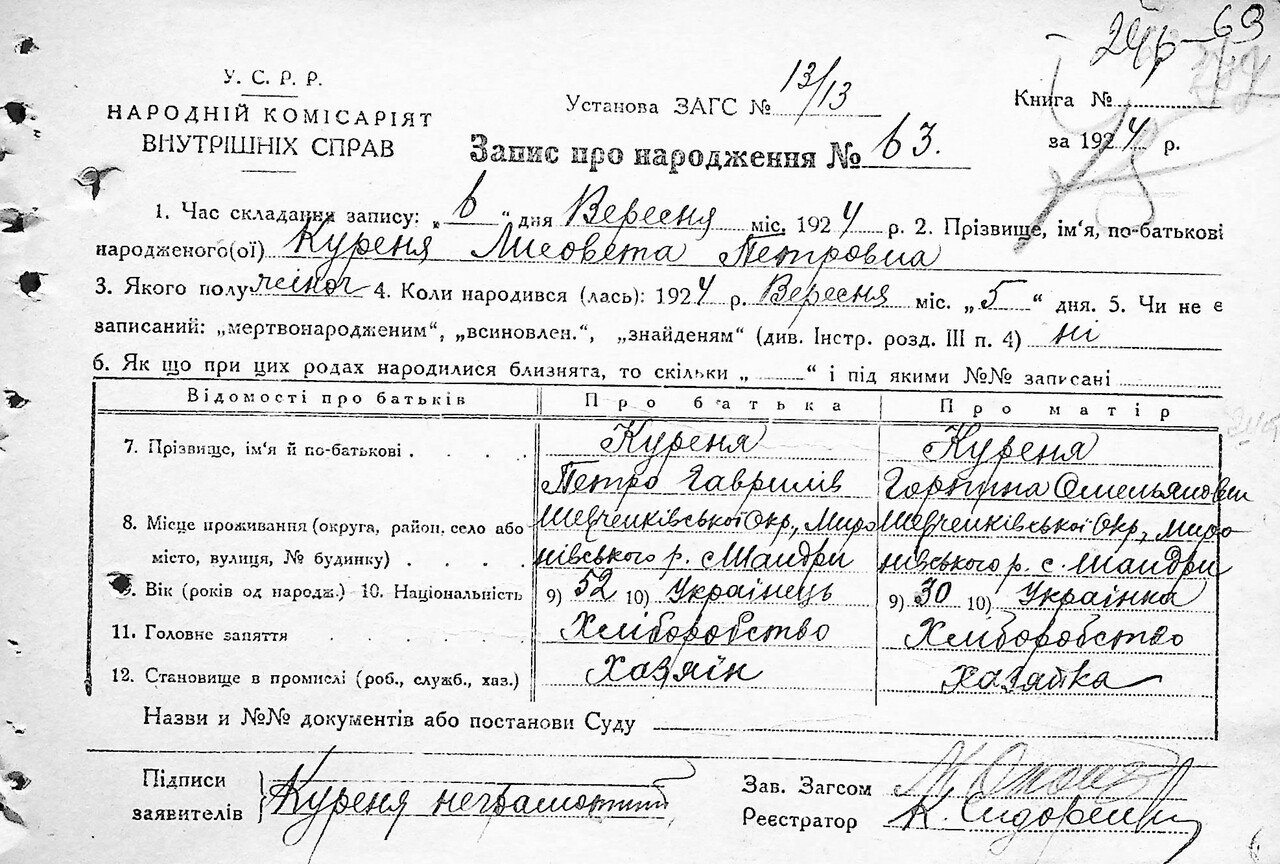 246-63
У. С. Р. Р.
НАРОДНІЙ КОМІСАРІЯТ
ВНУТРІШНІХ СПРАВ
Установа ЗАГС № 13/13
Книга №
Запис про народження № 63.
за 1924 р.
1. Час складання запису: „ 6 “ дня Вересня міс. 1924 р. 2. Прізвище, ім'я, по-батькові
народженого(ої) Куреня Лисовета Петровна
3. Якого полу жіноч 4. Коли народився (лась): 1924 р. Вересня міс. „ 5 “ дня. 5. Чи не є
записаний: „мертвонародженим“, „всиновлен.“, „знайденям“ (див. Інстр. розд. III п. 4) ні
6. Як що при цих родах народилися близнята, то скільки „ “ і під якими №№ записані
Відомості про батьків Про батька Про матір
7. Прізвище, ім'я й по-батькові . . . . Куреня Куреня
Петро Гаврилів Горпина Омельяновн
8. Місце проживання (округа, район, село або Шевченківської Окр., Миро Шевченківської Окр., Миро
місто, вулиця, № будинку) . . . . нівського р. с Шандри нівського р. с. Шандри
9. Вік (років од народж.) 10. Національність 9) 52 10) Українець 9) 30 10) Українка
11. Головне заняття . . . . . Хліборобство Хліборобство
12. Становище в промислі (роб., служб., хаз.) Хазяїн Хазяйка
Назви и №№ документів або постанови Суду
Підписи
заявителів Куреня неграмотний
Зав. Загсом
Реєстратор К. Сидорен